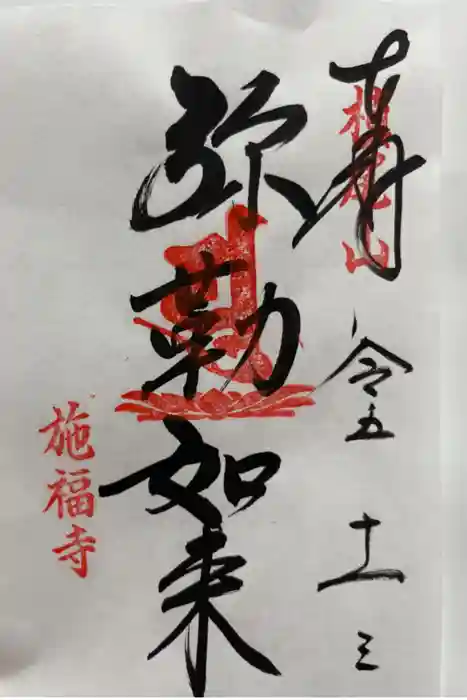 奉
槇尾山
令五
十一
三
弥勒如来
施福寺